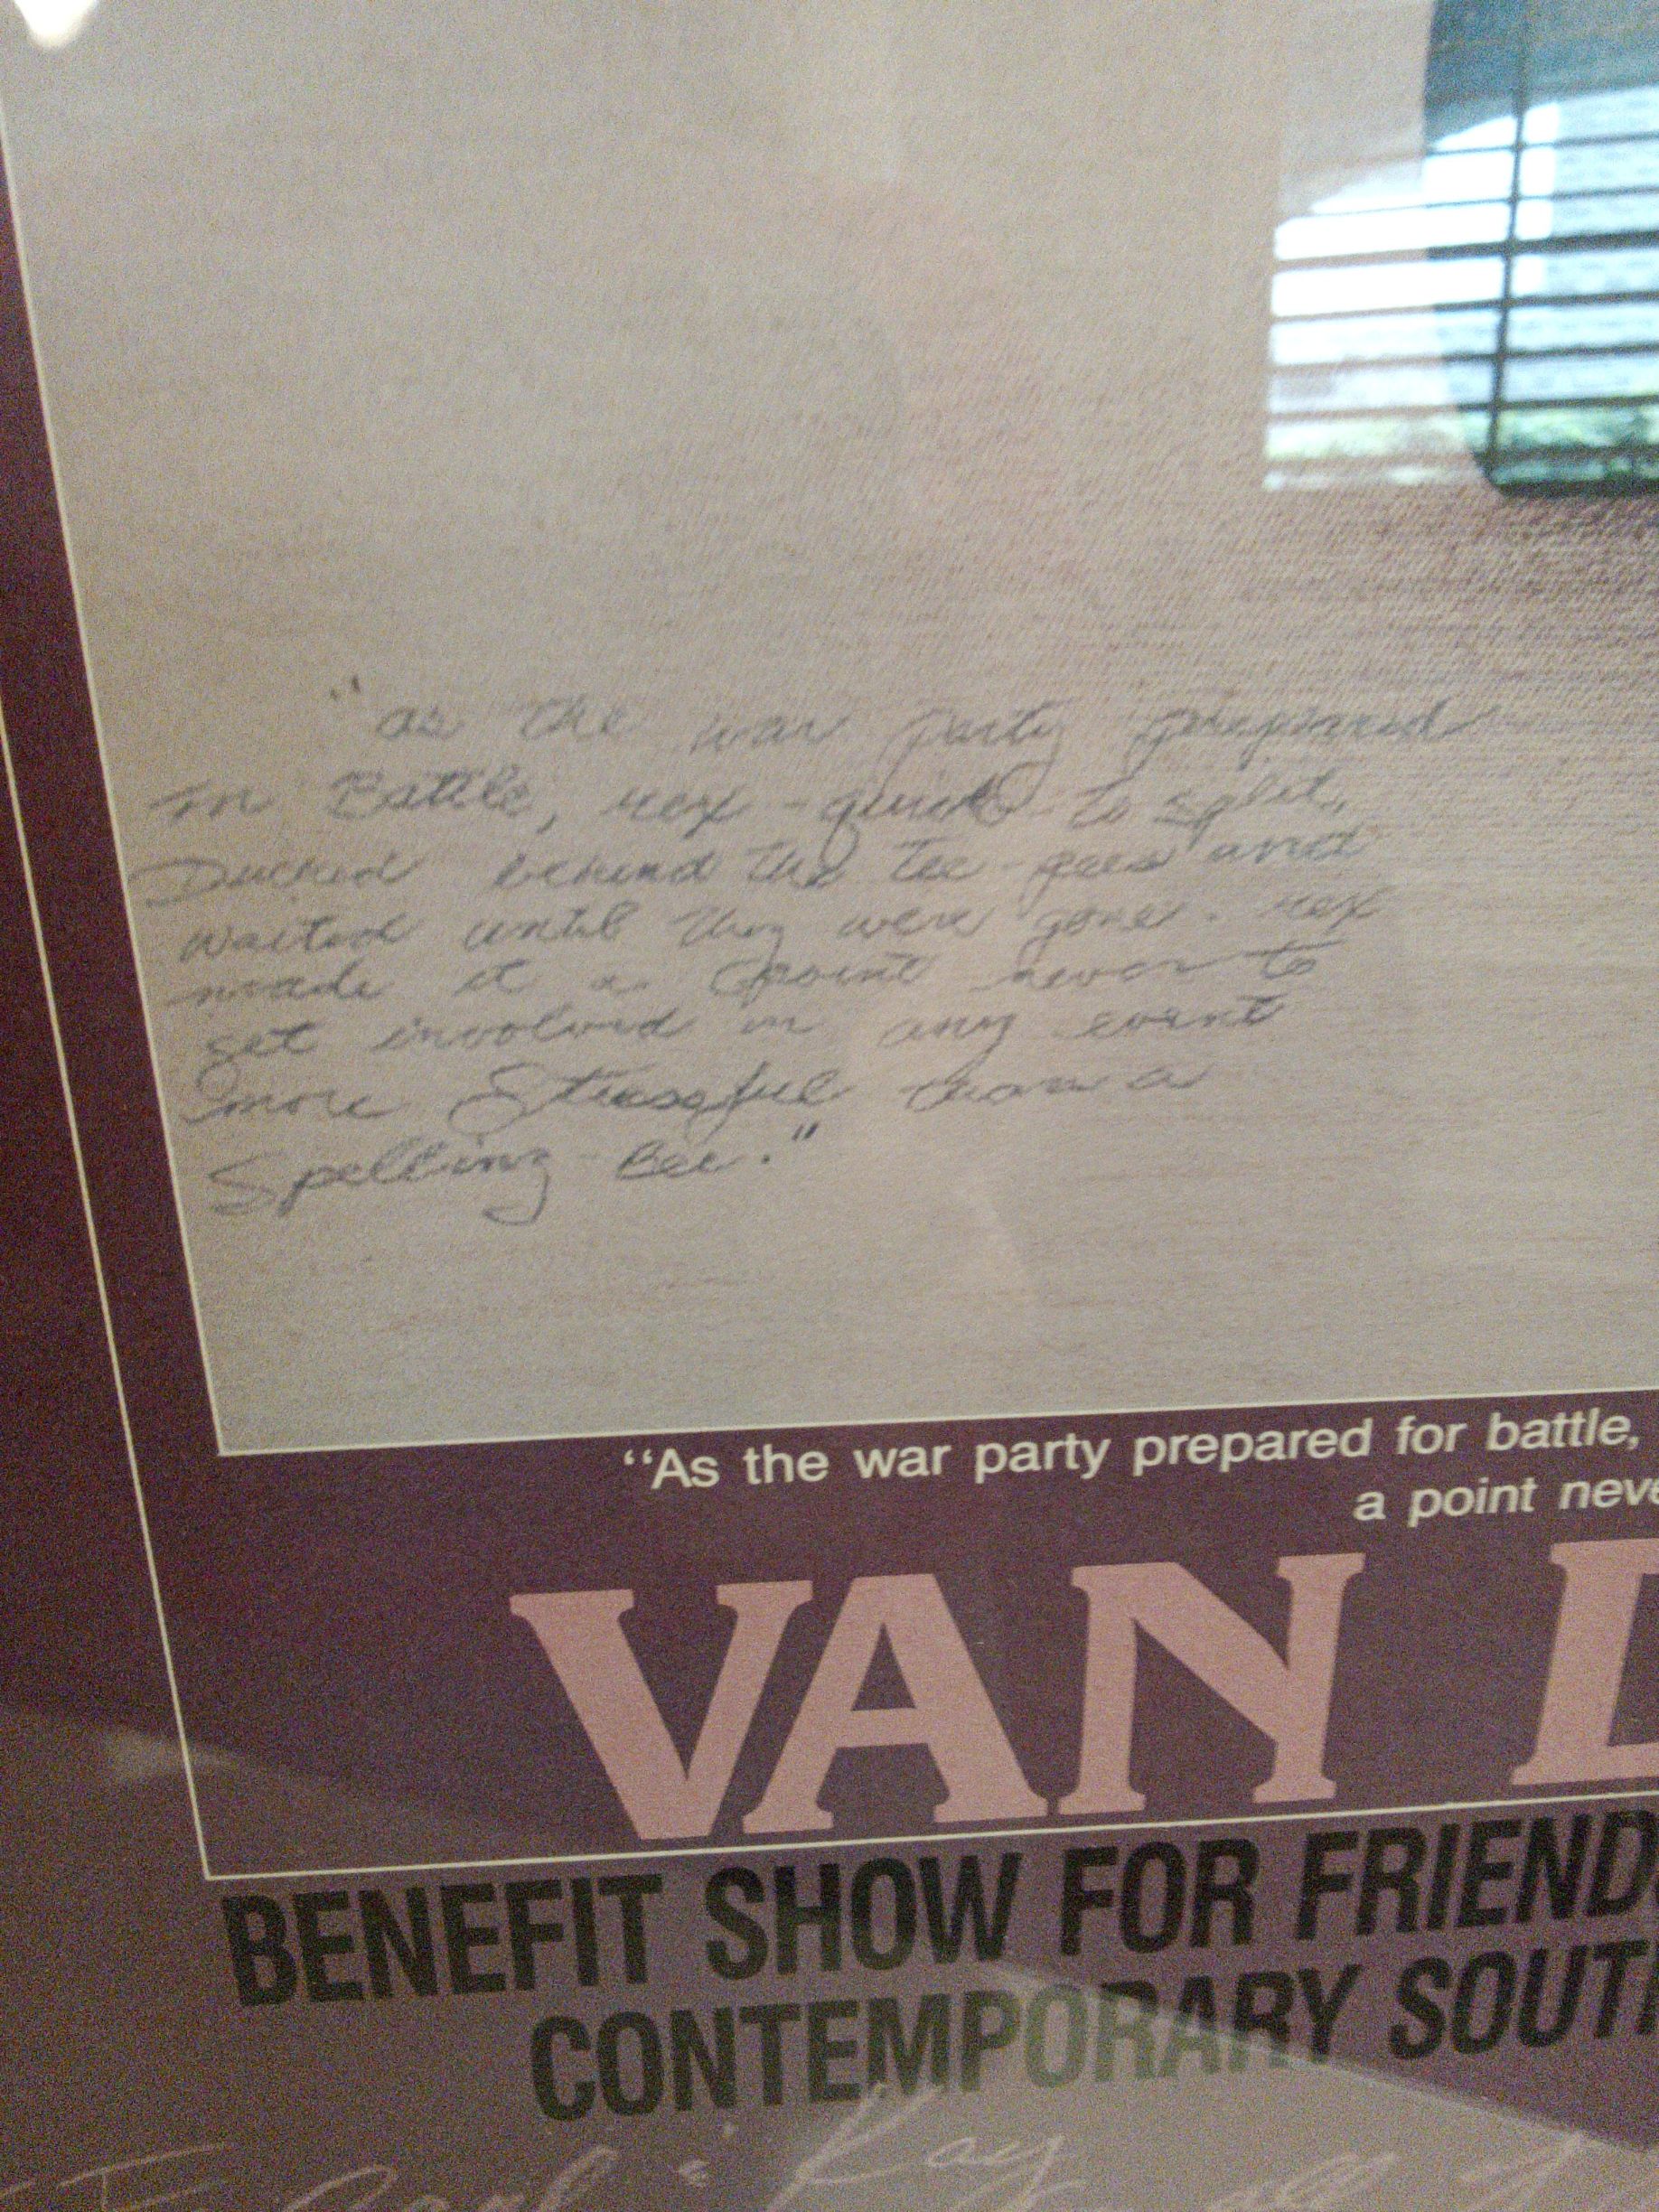 "as the war party prepared
in Battle, rex - quick to split,
Ducked behind the tee-pees and
waited until they were gone. rex
made it a point never to
get involved in any event
more Stressful than a
Spelling-Bee."
“As the war party prepared for battle,
a point neve
VAN
BENEFIT SHOW FOR FRIENDS
CONTEMPORARY SOUT
Kay